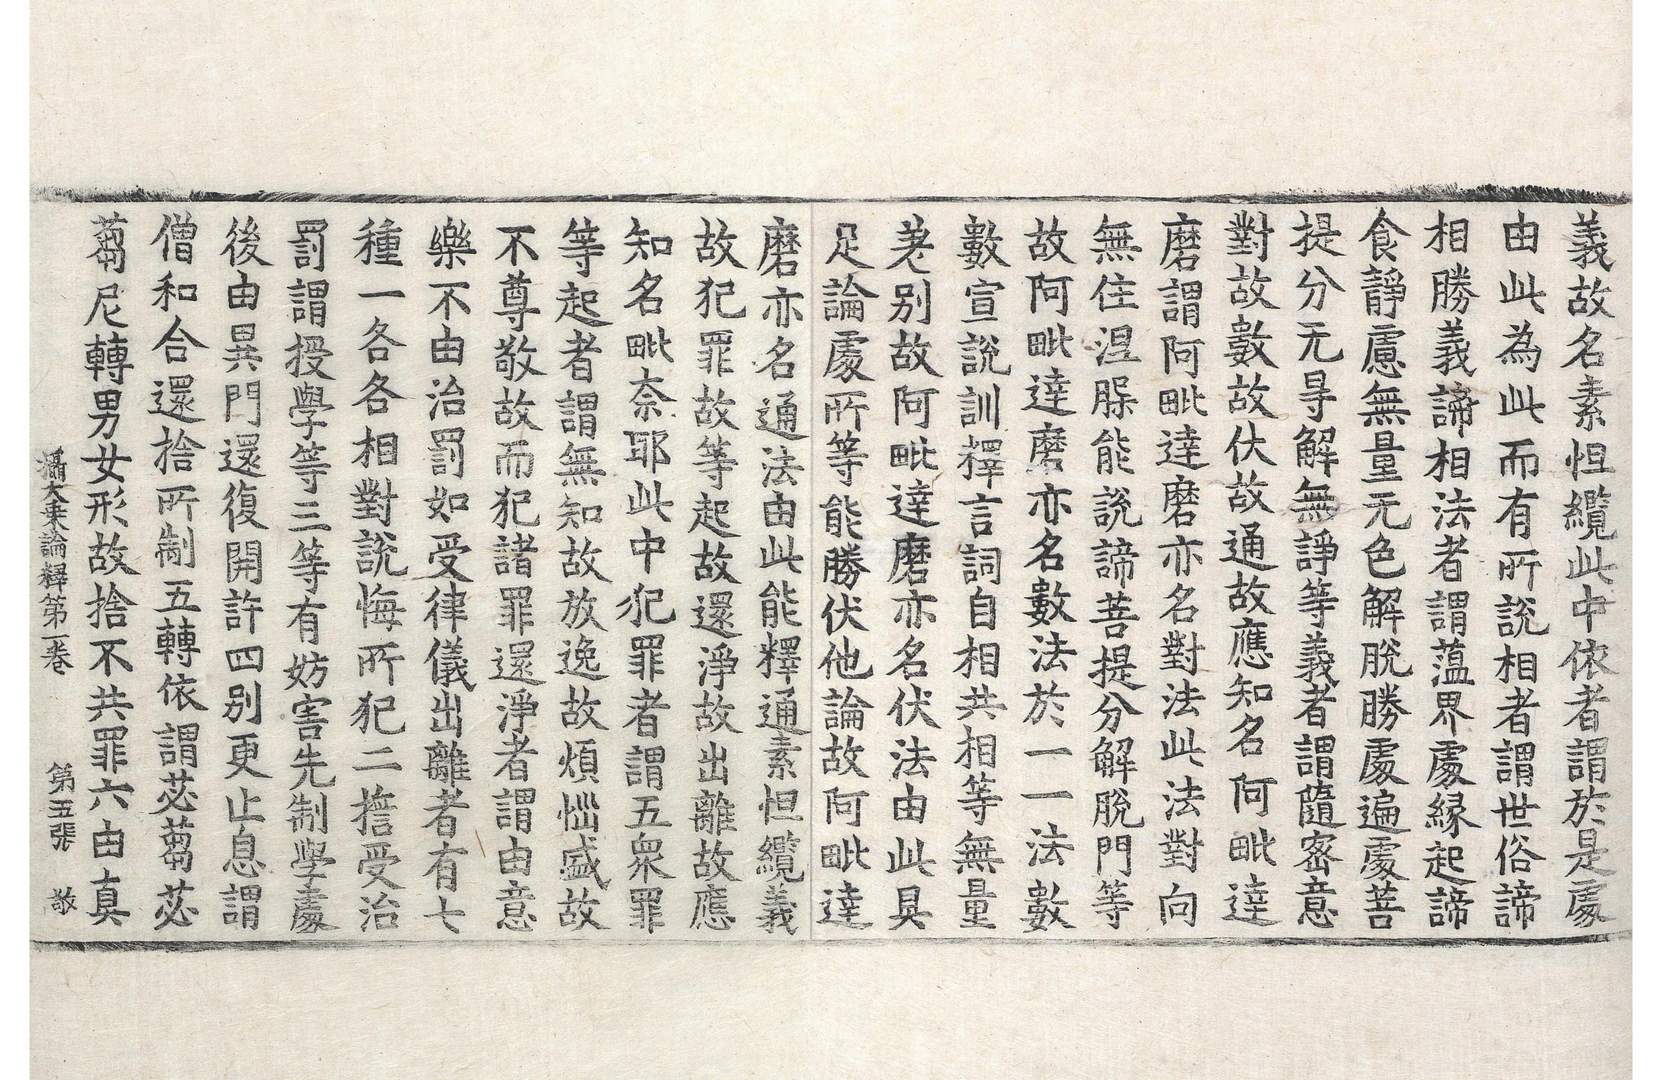 義故名素怛纜此中依者謂於是處
由此為此而有所說相者謂世俗諦
相勝義諦相法者謂薀界處縁起諦
食靜慮無量无色解脫勝處遍處菩
提分无㝵解無諍等義者謂隨密意
對故數故伏故通故應知名阿毗達
磨謂阿毗達磨亦名對法此法對向
無住涅槃能說諦菩提分解脫門等
故阿毗達磨亦名數法於一一法數
數宣說訓釋言詞自相共相等無量
差別故阿毗達磨亦名伏法由此具
足論處所等能勝伏他論故阿毗達
磨亦名通法由此能釋通素怛纜義
故犯罪故等起故還淨故出離故應
知名毗奈耶此中犯罪者謂五衆罪
等起者謂無知故放逸故煩惱盛故
不尊敬故而犯諸罪還淨者謂由意
樂不由治罰如受律儀出離者有七
種一各各相對說悔所犯二擔受治
罰謂授學等三等有妨害先制學處
後由異門還復開許四别更止息謂
僧和合還捨所制五轉依謂苾蒭苾
蒭尼轉男女形故捨不共罪六由真
攝大乗論釋第一卷 第五張 敬